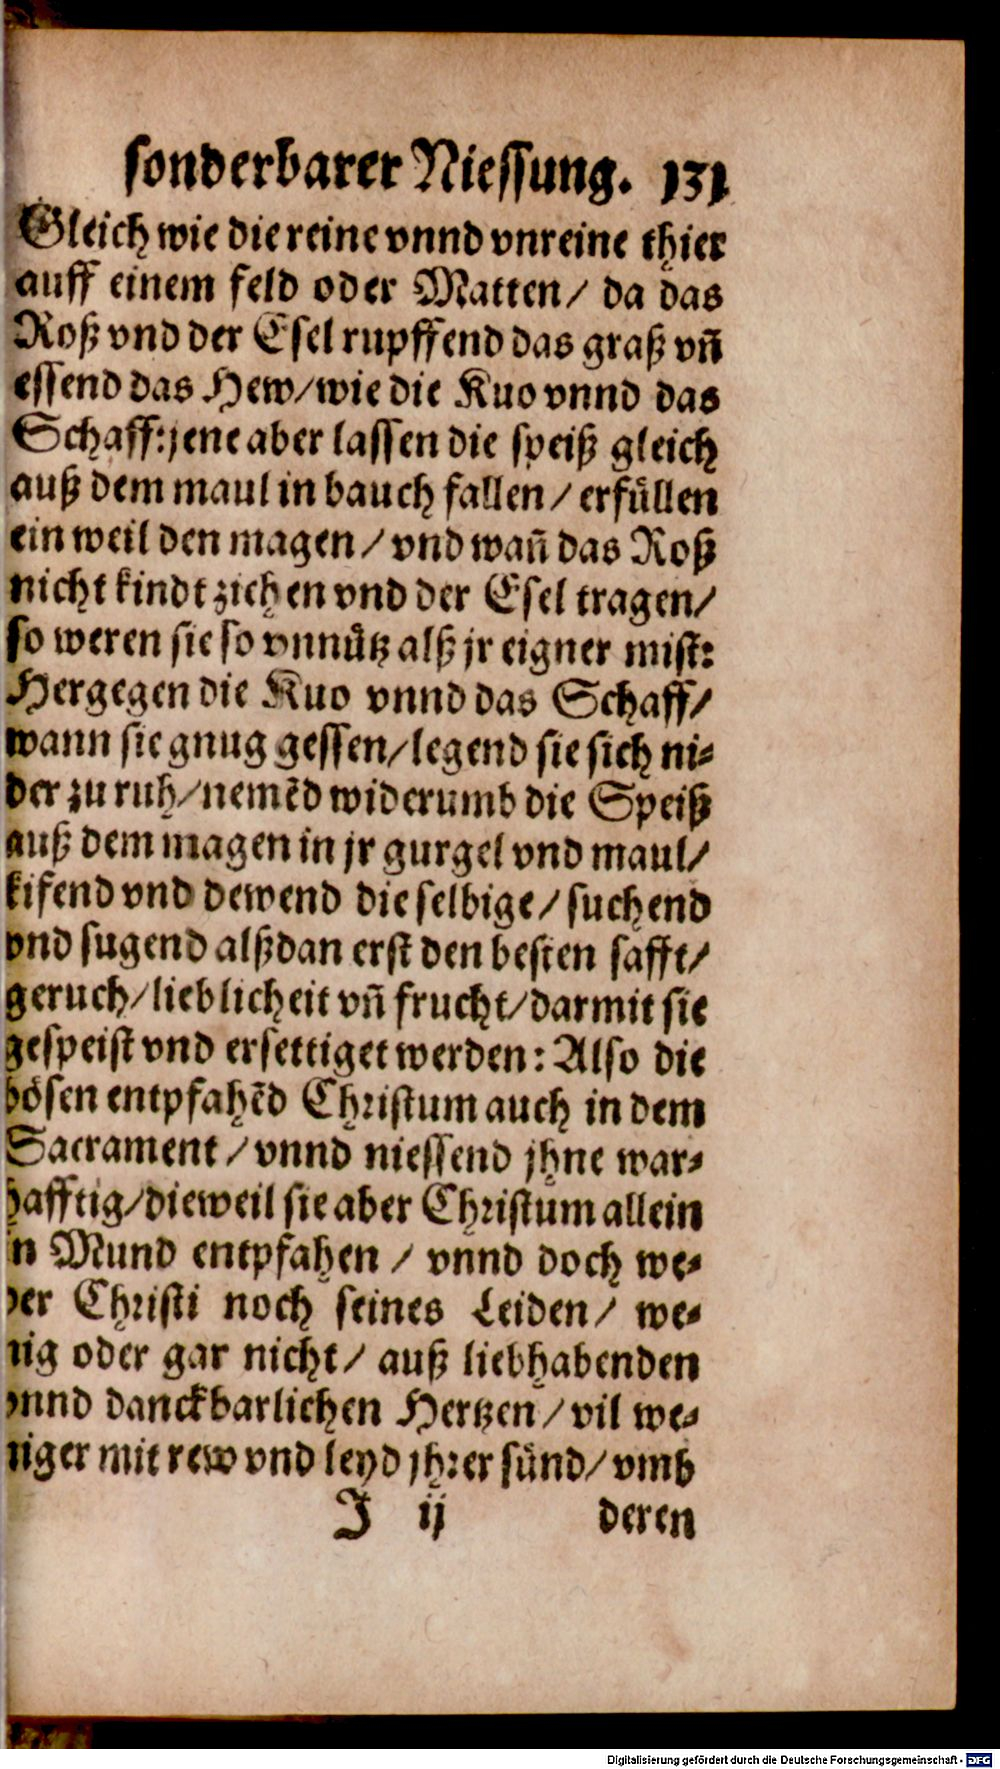 sonderbarer Niessung. 131
Gleich wie die reine vnnd vnreine thier
auff einem feld oder Matten/ da das
Roß vnd der Esel rupffend das graß vñ
essend das Hew/wie die Kuo vnnd das
Schaff:jene aber lassen die speiß gleich
auß dem maul in bauch fallen/ erfüllen
ein weil den magen/ vnd wañ das Roß
nicht kindt ziehen vnd der Esel tragen/
so weren sie so vnnütz alß jr eigner mist:
Hergegen die Kuo vnnd das Schaff/
wann sie gnug gessen/legend sie sich ni-
der zu ruh/nemēd widerumb die Speiß
auß dem magen in jr gurgel vnd maul/
kifend vnd dewend die selbige/ suchend
vnd sugend alßdan erst den besten safft/
geruch/lieblicheit vñ frucht/darmit sie
gespeist vnd ersettiget werden: Also die
bösen entpfahēd Christum auch in dem
Sacrament/ vnnd niessend jhne war-
hafftig/dieweil sie aber Christum allein
in Mund entpfahen/ vnnd doch we-
der Christi noch seines Leiden/ we-
nig oder gar nicht/ auß liebhabenden
vnnd danckbarlichen Hertzen/ vil we-
niger mit rew vnd leyd jhrer sünd/ vmb
J ij deren
Digitalisierung gefördert durch die Deutsche Forschungsgemeinschaft - DFG